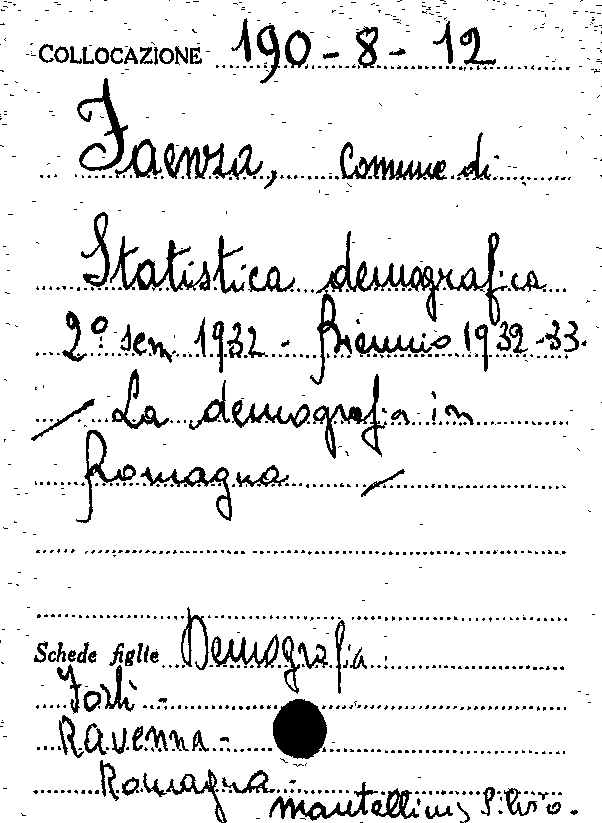 COLLOCAZIONE 190 - 8 - 12
Faenza, Comune di
Statistica demografica
2º sem. 1932 - Biennio 1932-33.
/ La demografia in
Romagna /
Schede figlie Demografia
Forlì -
Ravenna -
Romagna -
Mantellini, Silvio.